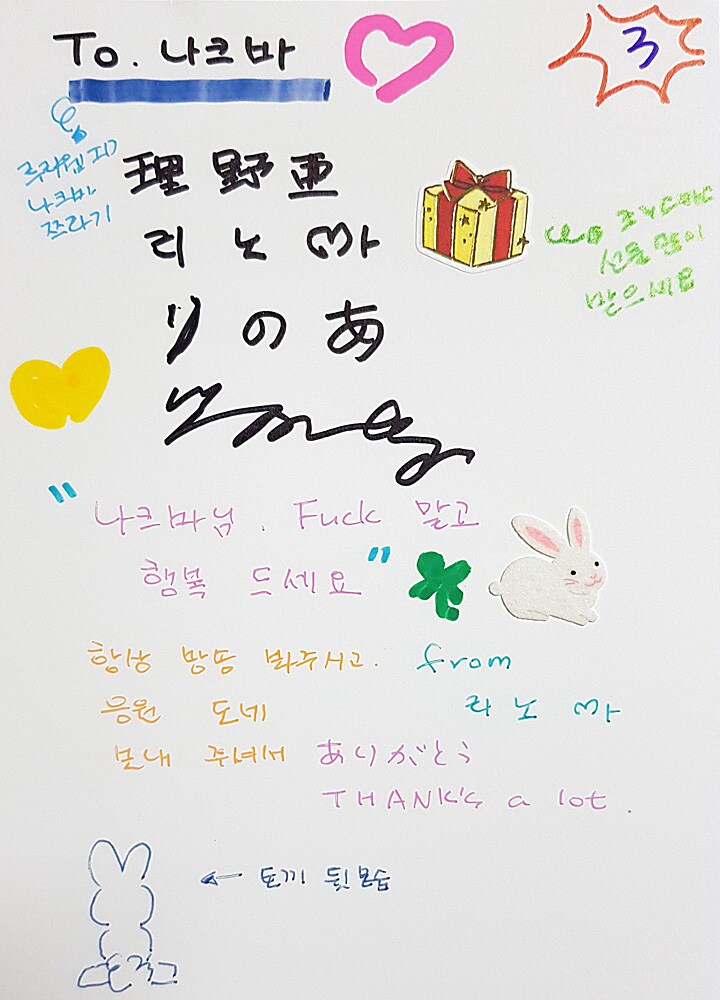 To. 나크바
3
나크바
쯔라기
理野亜
리노아
りのあ
선물 많이
받으세요
"나크바님. Fuck 말고
행복 드세요"
항상 방송 봐주시고.
응원 도네
보내 주셔서
from
리노아
ありがとう
THANK'S a lot.
← 토끼 뒷모습